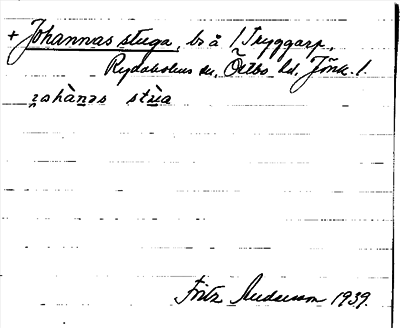 + Johannas stuga, bs å 1 Tryggarp,
Rydaholms sn, Östbo hd, Jönk. l.
Fritz Anderson 1939.